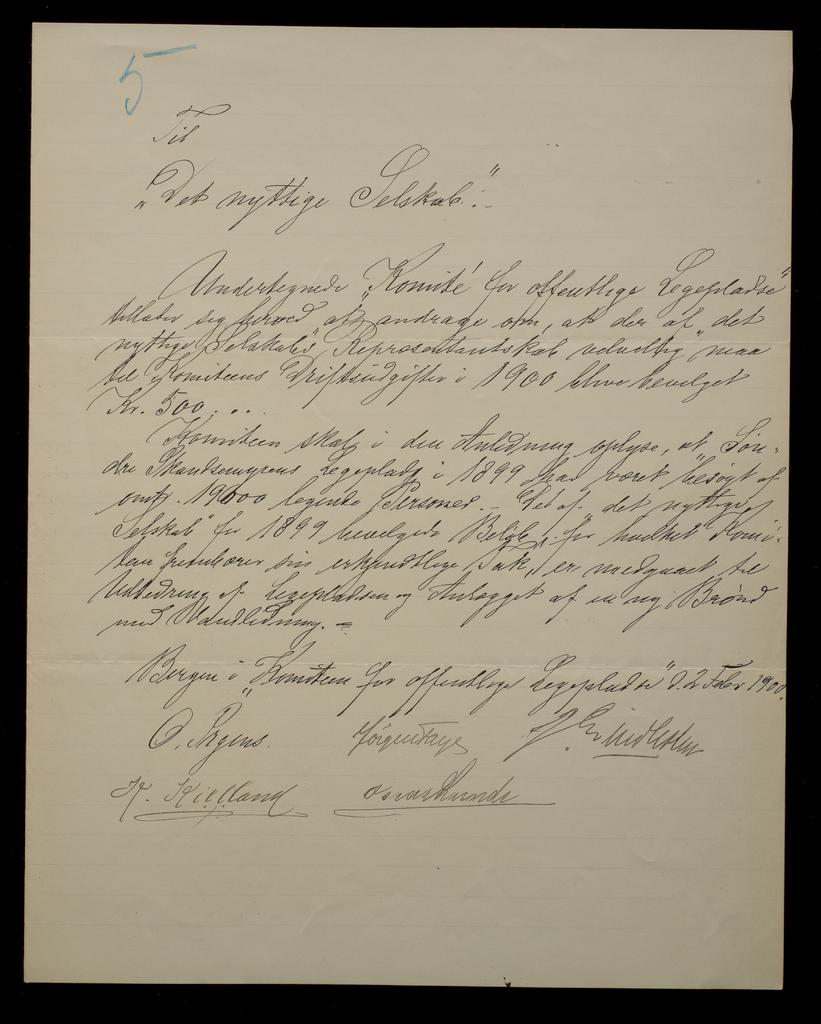 5
Til
"Det nyttige Selskab".
Undertegnede "Komité for offentlige Legepladse"
tillader sig herved at andrage om, at der af "det
nyttige Selskabs" Repræsentantskab velvilligt maa
til Komiteens Driftsudgifter i 1900 blive bevilget
Kr. 500. . .
Komiteen skal i den Anledning oplyse, at Søn-
dre Skandsemyrens Legeplads i 1899 har været besøgt af
omtr. 19600 legende Personer. – Det af "det nyttige
Selskab" for 1899 bevilgede Beløb, for hvilket Komi-
teen frembærer sin erkjendtlige Tak, er medgaaet til
Udbedring af Legepladsen og Anlægget af en ny Brønd
med Vandledning. –
Bergen i "Komiteen for offentlige Legepladse" d. 2 Febr 1900.
O. Irgens. Jørgen Faye
K. Kielland